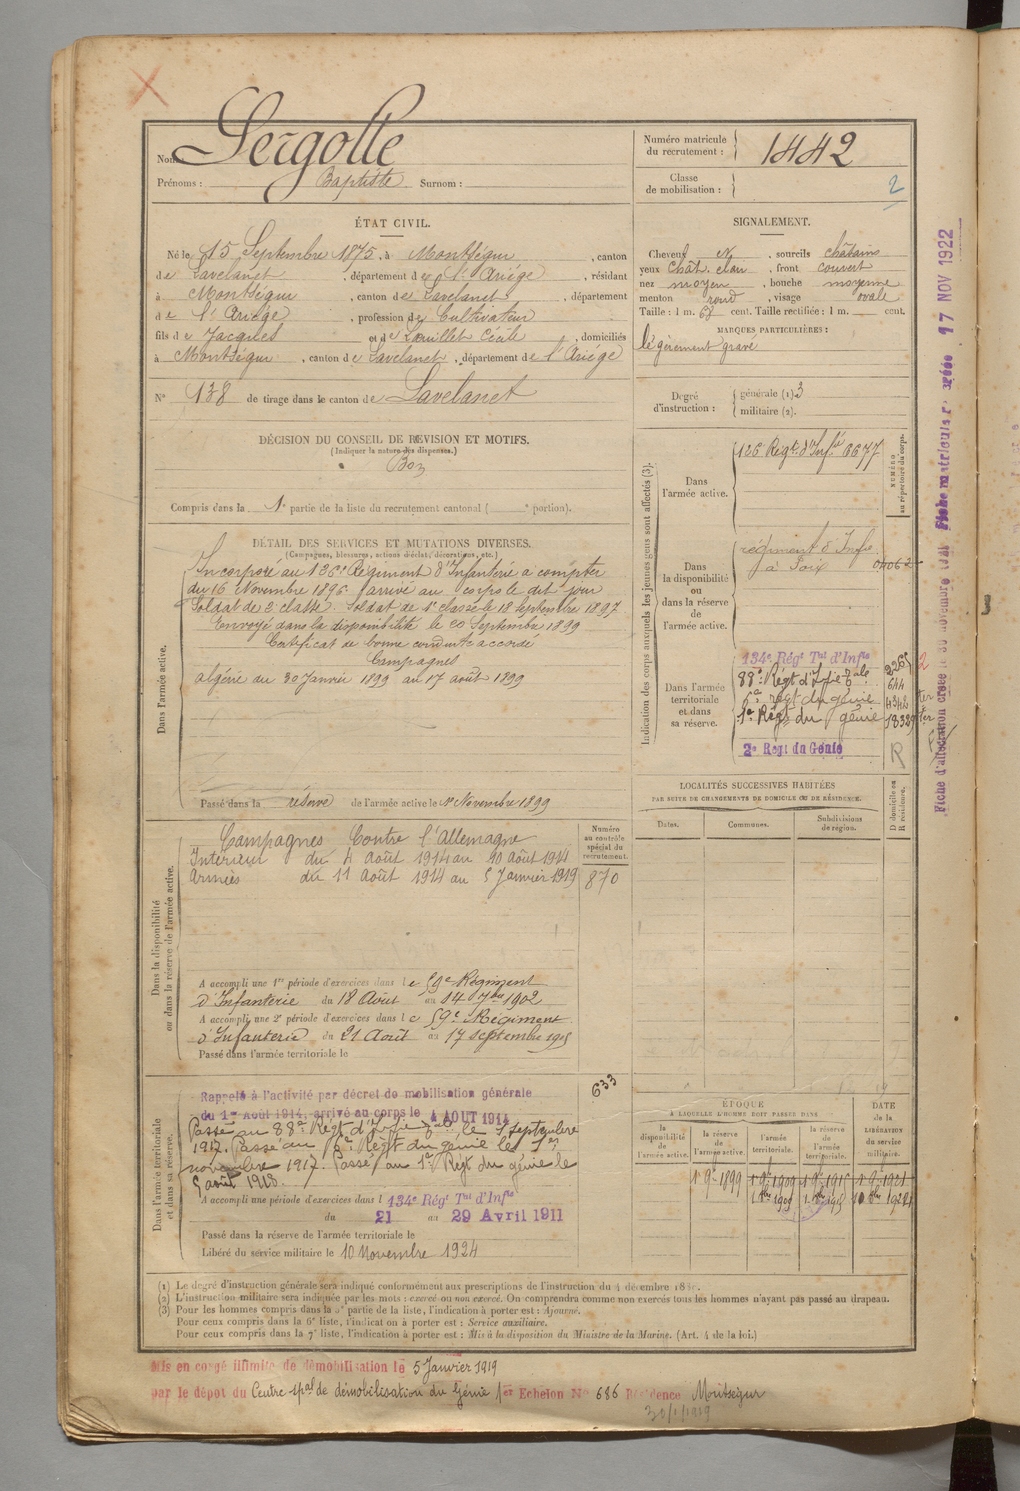 Nom : Sergolle
Prénoms : Baptiste Surnom :
Numéro matricule du recrutement : 1442
Classe de mobilisation :
2
ÉTAT CIVIL.
Né le 15 Septembre 1875, à Montségur, canton
de Lavelanet, département de l'Ariége, résidant
à Montségur, canton de Lavelanet, département
de l'Ariége, profession de Cultivateur
fils de Jacques et de Cécile, domiciliés
à Montségur, canton de Lavelanet, département de l'Ariége
N° 138 de tirage dans le canton de Lavelanet
SIGNALEMENT.
Cheveux et, sourcils châtains
yeux chât. clair, front couvert
nez moyen, bouche moyenne
menton rond, visage ovale
Taille : 1 m. 68 cent. Taille rectifiée : 1 m. cent.
MARQUES PARTICULIÈRES :
légèrement gravé
Degré d'instruction : générale (1) 3
militaire (2).
DÉCISION DU CONSEIL DE REVISION ET MOTIFS.
(Indiquer la nature des dispenses.)
Bon
Compris dans la 1e partie de la liste du recrutement cantonal ( e portion).
Indication des corps auxquels les jeunes gens sont affectés (3).
Dans l'armée active.
126e Régt. d'Inf.ie 6677
NUMÉRO au répertoire du corps.
Dans la disponibilité ou dans la réserve de l'armée active.
régiment d'Infie
à Foix 04062
Dans l'armée territoriale et dans sa réserve.
134e Régt Tal d'Infie
88e Régt d'Infie 644
6e régt du génie
1er Régt du génie 18329
2e Régt du Génie R
DÉTAIL DES SERVICES ET MUTATIONS DIVERSES.
(Campagnes, blessures, actions d'éclat, décorations, etc.)
Dans l'armée active.
Incorporé au 126e Régiment d'Infanterie à compter
du 16 Novembre 1896 arrivé au corps le dit jour
Soldat de 2e classe. Soldat de 1e classe le 18 Septembre 1897
Envoyé dans la disponibilité le 20 Septembre 1899
Certificat de bonne conduite accordé
Campagnes
Algérie du 30 Janvier 1899 au 17 août 1899
Passé dans la réserve de l'armée active le 1er Novembre 1899
LOCALITÉS SUCCESSIVES HABITÉES
PAR SUITE DE CHANGEMENTS DE DOMICILE OU DE RÉSIDENCE.
Dates. Communes. Subdivisions de région. D domicile ou R résidence.
Dans la disponibilité ou dans la réserve de l'armée active.
Campagnes Contre l'Allemagne
Intérieur du 4 Août 1914 au 10 Août 1914
Armées du 11 Août 1914 au 5 Janvier 1919
Numéro au contrôle spécial du recrutement.
870
A accompli une 1re période d'exercices dans le 59e Régiment
d'Infanterie du 18 Août au 14 7bre 1902
A accompli une 2e période d'exercices dans le 59e Régiment
d'Infanterie du 21 Août au 17 septembre 1905
Passé dans l'armée territoriale le
Dans l'armée territoriale et dans sa réserve.
633
Rappelé à l'activité par décret de mobilisation générale
du 1er Août 1914, arrivé au corps le 4 AOUT 1914
Passé au 88e Régt d'Infie le 1 septembre
1917. Passé au 6e Régt du génie le 1er
novembre 1917. Passé au 1er Régt du génie le
5 août 1918.
A accompli une période d'exercices dans l 134e Régt Tal d'Infie
du 21 au 29 Avril 1911
Passé dans la réserve de l'armée territoriale le
Libéré du service militaire le 10 Novembre 1924
ÉPOQUE
À LAQUELLE L'HOMME DOIT PASSER DANS
la disponibilité de l'armée active. la réserve de l'armée active. l'armée territoriale. la réserve de l'armée territoriale.
DATE de la LIBÉRATION du service militaire.
1er 9e 1899 1er 9e 1909 1er 9e 1915 1er 9e 1921
(1) Le degré d'instruction générale sera indiqué conformément aux prescriptions de l'instruction du 4 décembre
(2) L'instruction militaire sera indiquée par les mots : exercé ou non exercé. On comprendra comme non exercés tous les hommes n'ayant pas passé au drapeau.
(3) Pour les hommes compris dans la 5e partie de la liste, l'indication à porter est : Ajourné.
Pour ceux compris dans la 6e liste, l'indication à porter est : Service auxiliaire.
Pour ceux compris dans la 7e liste, l'indication à porter est : Mis à la disposition du Ministre de la Marine. (Art. 4 de la loi.)
Mis en congé illimité de démobilisation le 5 Janvier 1919
par le dépôt du Centre spal de démobilisation du Génie 1er Echelon No 686 Résidence Montségur
30/1/1919
17 NOV 1922